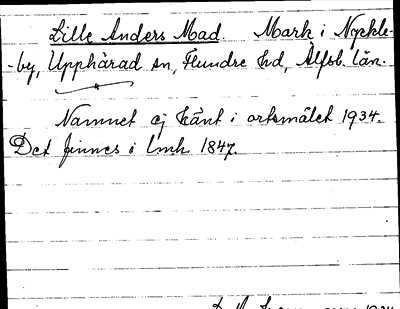 Lille Anders Mad. Mark i Nyckle-
-by, Upphärad sn, Flundre hd, Älfsb. län.
Namnet ej känt i ortsmålet 1934.
Det finnes i lmh. 1847.